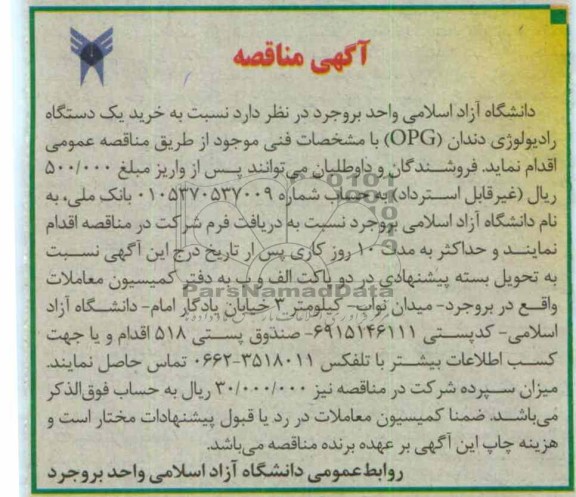 آگهی مناقصه
دانشگاه آزاد اسلامی واحد بروجرد در نظر دارد نسبت به خرید یک دستگاه
رادیولوژی دندان (OPG) با مشخصات فنی موجود از طریق مناقصه عمومی
اقدام نماید. فروشندگان و داوطلبان می‌توانند پس از واریز مبلغ ۵۰۰/۰۰۰
ریال (غیرقابل استرداد) به حساب شماره ۰۱۰۵۳۷۰۵۳۷۰۰۹ بانک ملی، به
نام دانشگاه آزاد اسلامی بروجرد نسبت به دریافت فرم شرکت در مناقصه اقدام
نمایند و حداکثر به مدت ۱۰ روز کاری پس از تاریخ درج این آگهی نسبت
به تحویل بسته پیشنهادی در دو پاکت الف و ب به دفتر کمیسیون معاملات
ParsNamadData
واقع در بروجرد- میدان نواب- کیلومتر ۳ خیابان یادگار امام- دانشگاه آزاد
اسلامی- کدپستی ۶۹۱۵۱۴۶۱۱۱- صندوق پستی ۵۱۸ اقدام و یا جهت
کسب اطلاعات بیشتر با تلفکس ۳۵۱۸۰۱۱-۰۶۶۲ تماس حاصل نمایند.
میزان سپرده شرکت در مناقصه نیز ۳۰/۰۰۰/۰۰۰ ریال به حساب فوق‌الذکر
می‌باشد. ضمنا کمیسیون معاملات در رد یا قبول پیشنهادات مختار است و
هزینه چاپ این آگهی بر عهده برنده مناقصه می‌باشد.
روابط عمومی دانشگاه آزاد اسلامی واحد بروجرد